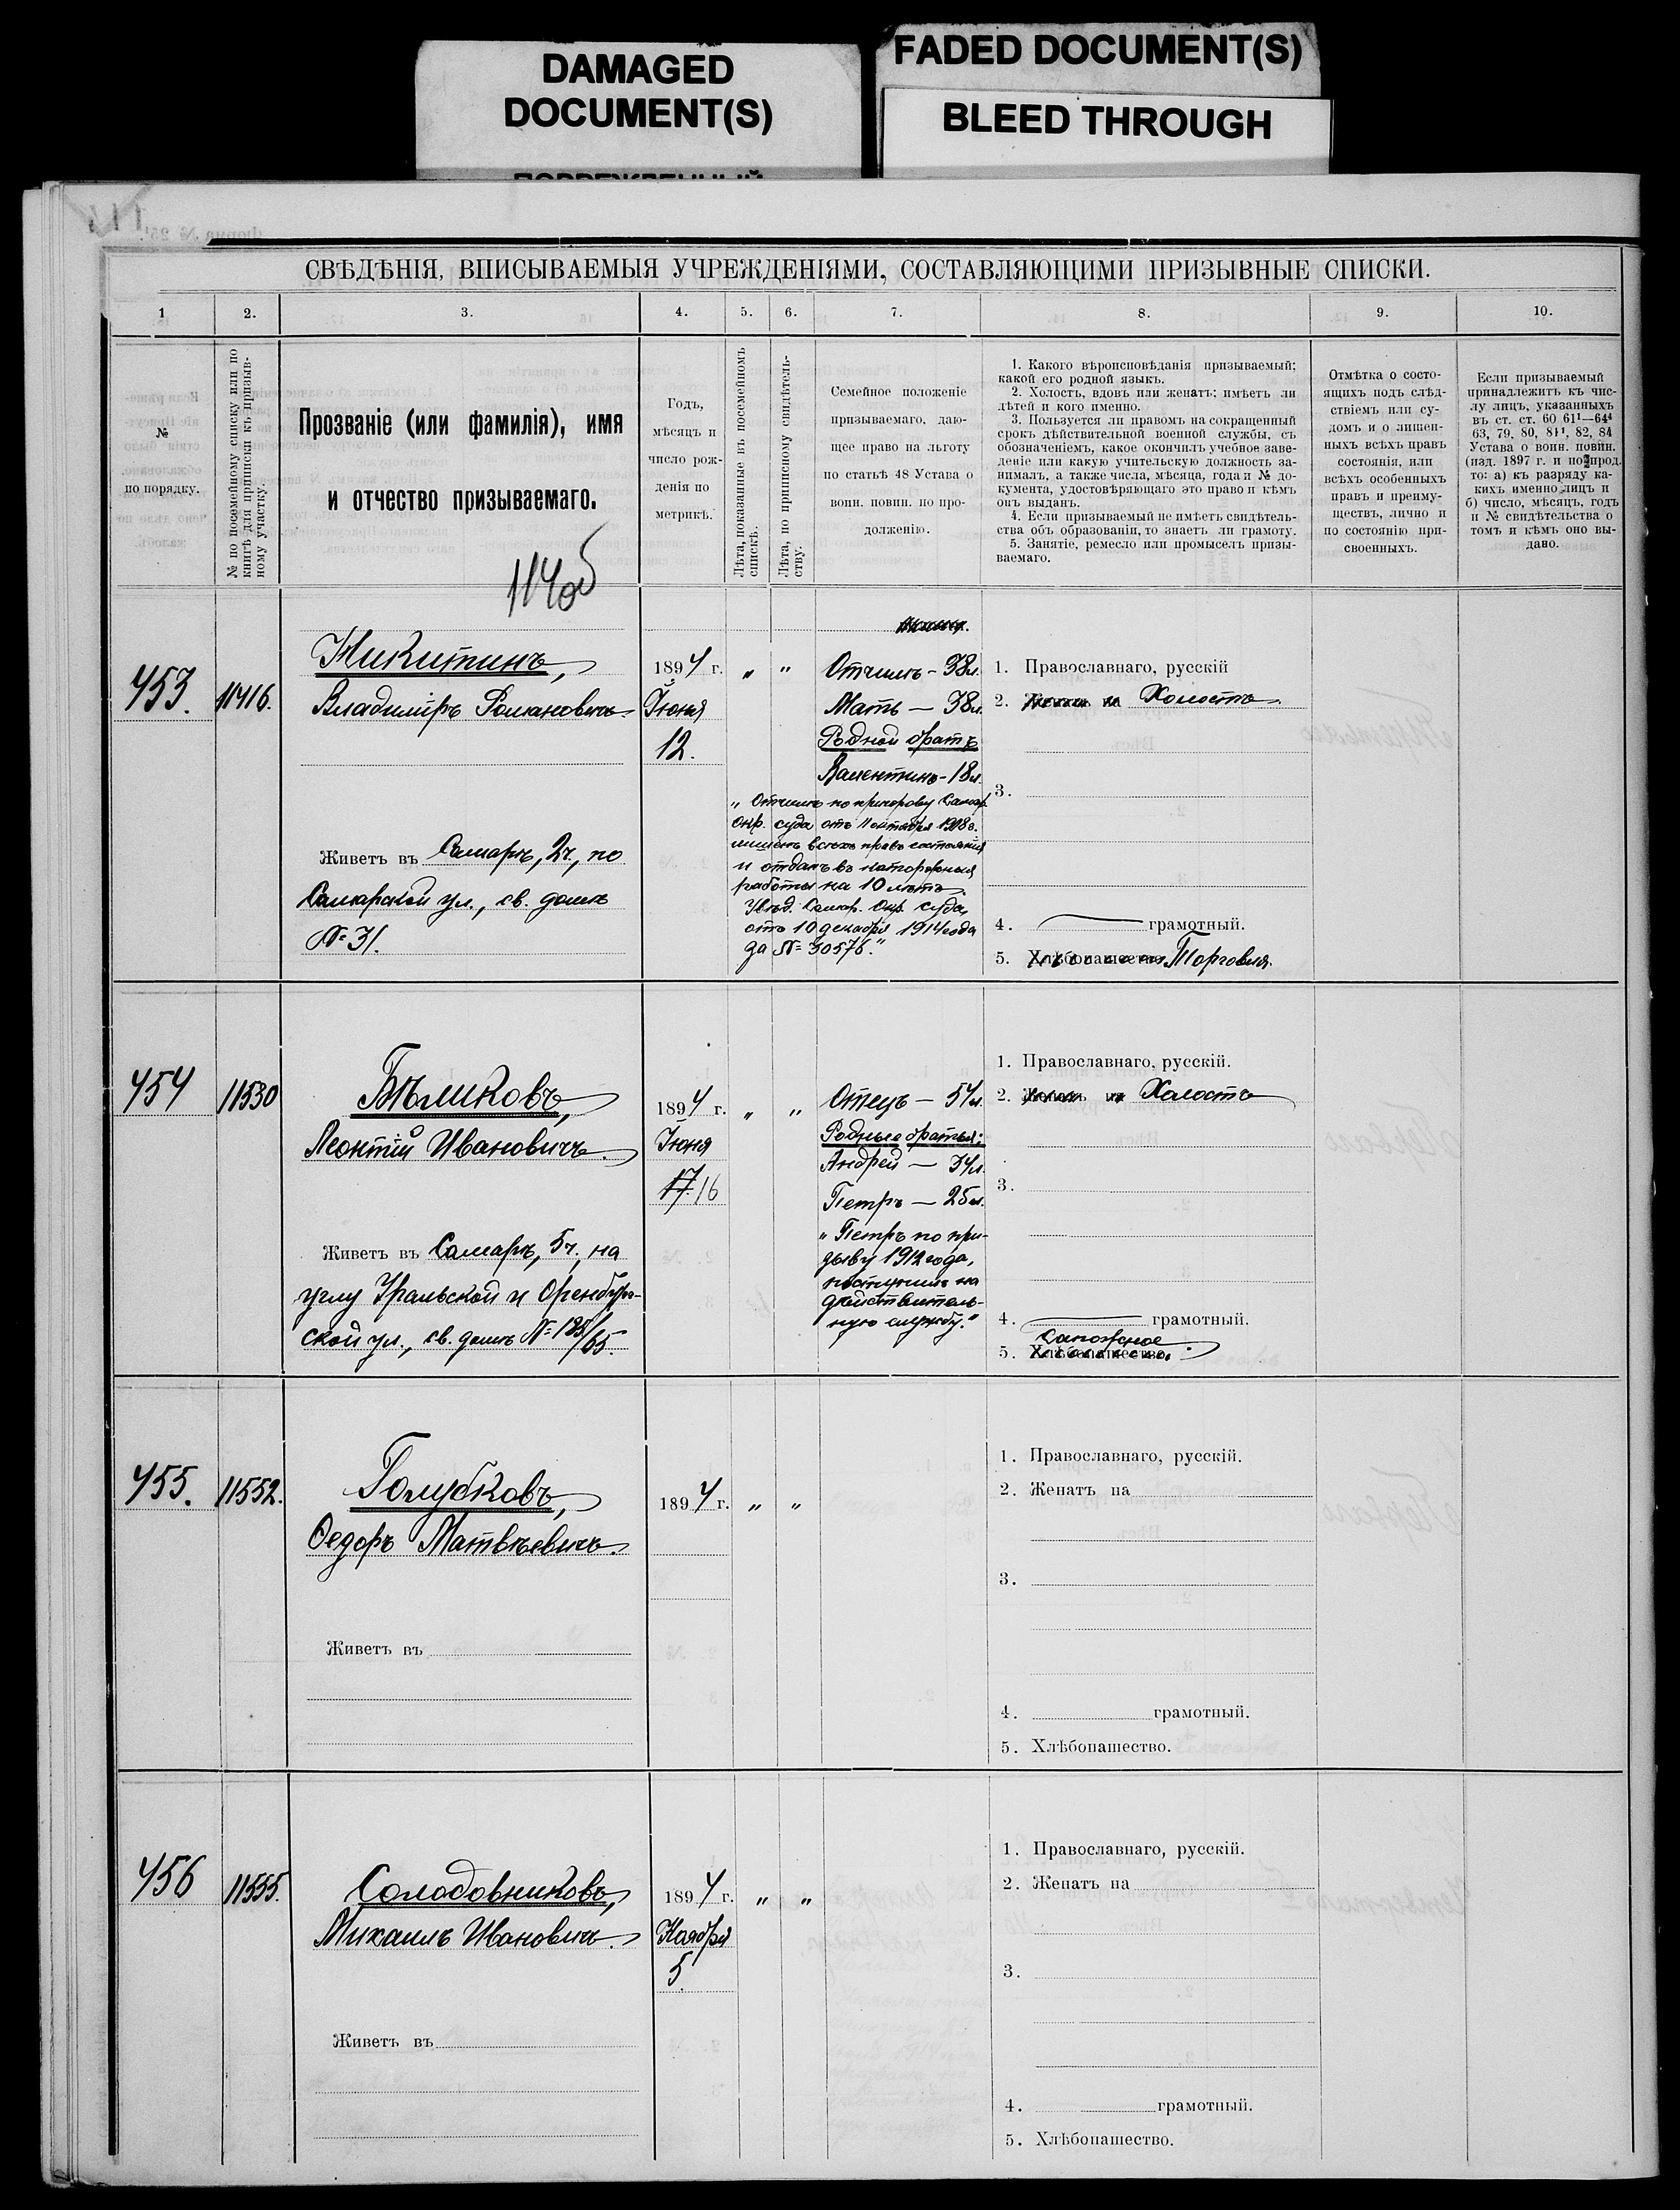 DAMAGED
DOCUMENT(S)
FADED DOCUMENT(S)
BLEED THROUGH
СВѢДѢНІЯ, ВПИСЫВАЕМЫЯ УЧРЕЖДЕНІЯМИ, СОСТАВЛЯЮЩИМИ ПРИЗЫВНЫЕ СПИСКИ.
1 2. 3. 4. 5. 6. 7. 8. 9. 10.
№
по порядку.
№ по посемейному списку или по
книгѣ для приписки къ призыв-
ному участку.
Прозваніе (или фамилія), имя
и отчество призываемаго.
Годъ,
мѣсяцъ и
число рож-
денія по
метрикѣ.
Лѣта, показанныя въ посемейномъ
спискѣ.
Лѣта, по приписному свидѣтель-
ству.
Семейное положеніе
призываемаго, даю-
щее право на льготу
по статьѣ 48 Устава о
воин. повин. по про-
долженію.
1. Какого вѣроисповѣданія призываемый;
какой его родной языкъ.
2. Холостъ, вдовъ или женатъ; имѣетъ ли
дѣтей и кого именно.
3. Пользуется ли правомъ на сокращенный
срокъ дѣйствительной военной службы, съ
обозначеніемъ, какое окончилъ учебное заве-
деніе или какую учительскую должность за-
нималъ, а также числа, мѣсяца, года и № до-
кумента, удостовѣряющаго это право и кѣмъ
онъ выданъ.
4. Если призываемый не имѣетъ свидѣтель-
ства объ образованіи, то знаетъ ли грамоту.
5. Занятіе, ремесло или промыселъ призы-
ваемаго.
Отмѣтка о состо-
ящихъ подъ слѣд-
ствіемъ или су-
домъ и о лишен-
ныхъ всѣхъ правъ
состоянія, или
всѣхъ особенныхъ
правъ и преиму-
ществъ, лично и
по состоянію при-
своенныхъ.
Если призываемый
принадлежитъ къ чис-
лу лицъ, указанныхъ
въ ст. ст. 60 61¹—64⁴
63, 79, 80, 81¹, 82, 84
Устава о воин. повин.
(изд. 1897 г. и по прод.
то: а) къ разряду ка-
кихъ именно лицъ и
б) число, мѣсяцъ, годъ
и № свидѣтельства о
томъ и кѣмъ оно вы-
дано.
114об
453. 11416.
Никитинъ,
Владиміръ Романовичъ.
Живетъ въ Самарѣ, 2ч., по
Самарской ул., св. домъ
№ 31.
1894 г.
Іюня
12.
" "
Отчимъ - 38л.
Мать — 38л.
Родной братъ
Валентинъ - 18л.
"Отчимъ по приговору Самар.
окр. суда отъ 11 октября 1908г.
лишенъ всѣхъ правъ состоянія
и отданъ въ каторжныя
работы на 10 лѣтъ.
Увѣд. Самар. Окр. Суда,
отъ 10 декабря 1914 года
за № 30576."
1. Православнаго, русскій
2. Женатъ на Холостъ
3.
4. грамотный.
5. Хлѣбопашество Торговля.
454 11530
Бѣликовъ,
Леонтій Ивановичъ.
Живетъ въ Самарѣ, 5ч., на
углу Уральской и Оренбург-
ской ул., св. домъ № 185/65.
1894 г.
Іюня
17. 16
" "
Отецъ — 57л.
Родные братья:
Андрей — 34л.
Петръ — 25л.
"Петръ по при-
зыву 1912 года,
поступилъ на
дѣйствитель-
ную службу."
1. Православнаго, русскій.
2. Женатъ на Холостъ
3.
4. грамотный.
Сапожное
5. Хлѣбопашество.
455. 11552.
Голубковъ,
Ѳедоръ Матвѣевичъ.
Живетъ въ
1894 г.
" "
1. Православнаго, русскій.
2. Женатъ на
3.
4. грамотный.
5. Хлѣбопашество.
456 11555.
Солодовниковъ,
Михаилъ Ивановичъ.
Живетъ въ
1894 г.
Ноября
5.
" "
1. Православнаго, русскій.
2. Женатъ на
3.
4. грамотный.
5. Хлѣбопашество.